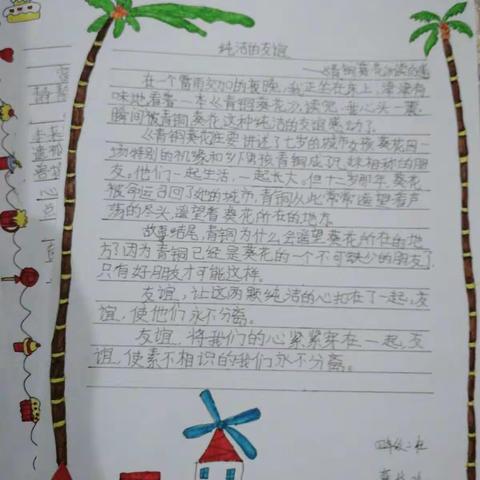 纯洁的友谊
——《青铜葵花》读后感
在一个雷雨交加的夜晚，我正坐在床上，津津有
味地看着一本《青铜葵花》，读完，我心头一震，
瞬间被青铜葵花这种纯洁的友谊感动了。
《青铜葵花》主要讲述了七岁的城市女孩葵花因一
场特别的机缘和乡村男孩青铜成了兄妹相称的朋
友。他们一起生活，一起长大。但十二岁那年，葵花
被命运召回了她的城市，青铜从此常常遥望着芦
荡的尽头，遥望着葵花所在的地方。
故事结尾，青铜为什么会遥望葵花所在的地
方？因为青铜已经是葵花的一个不可缺少的朋友了，
只有好朋友才可能这样。
友谊，让这两颗纯洁的心扣在了一起，友
谊，使他们永不分离。
友谊，将我们的心紧紧穿在一起，友
谊，使素不相识的我们永不分离。
四年级二班